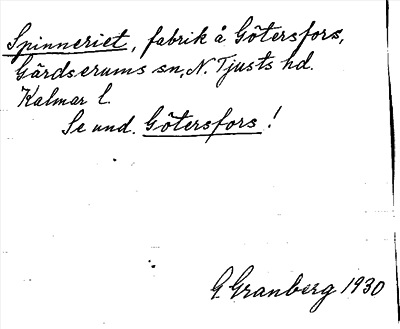 Spinneriet, fabrik å Götersfors,
Gärdserums sn, N. Tjusts hd.
Kalmar l.
Se und. Götersfors!
G. Granberg 1930